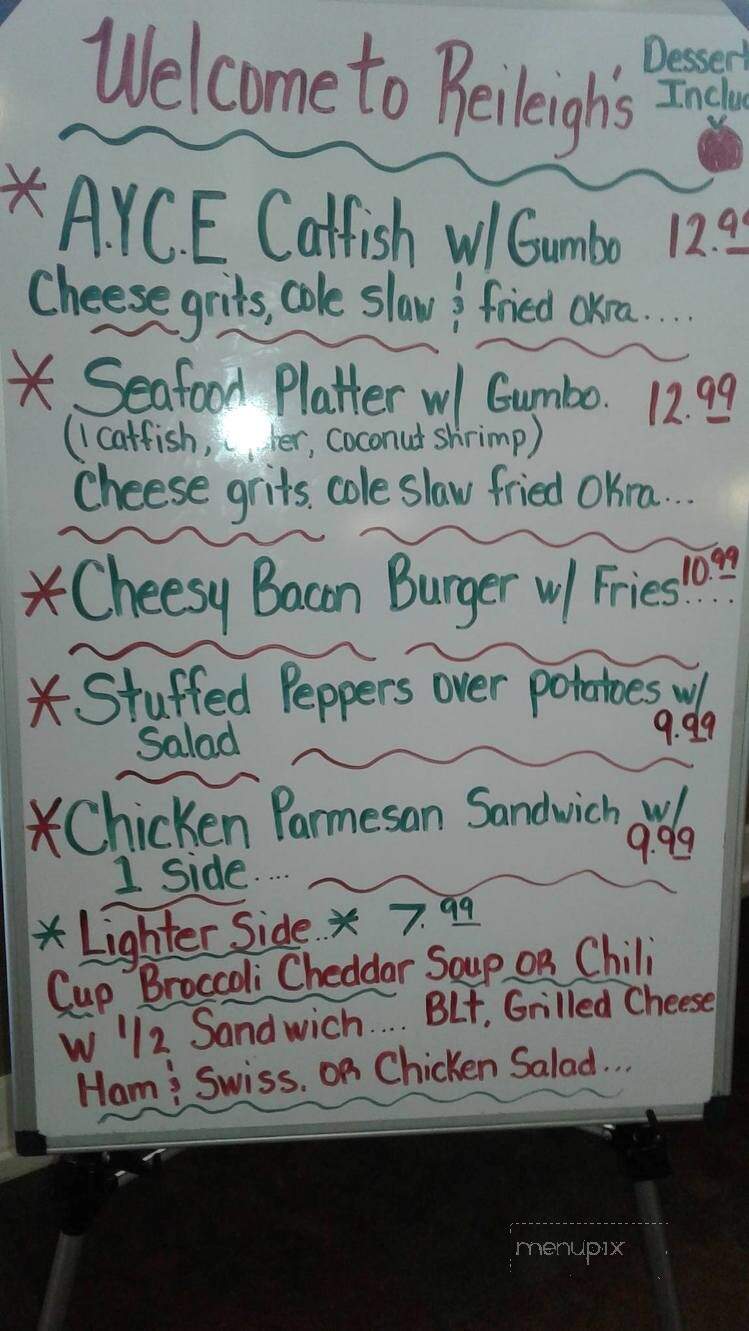 Welcome to Reileigh's
Dessert
Includ
* A.Y.C.E Catfish w/ Gumbo 12.99
Cheese grits, cole slaw & fried okra....
* Seafood Platter w/ Gumbo. 12.99
(1 catfish, coconut shrimp)
Cheese grits. cole slaw fried okra...
* Cheesy Bacon Burger w/ Fries.... 10.99
* Stuffed Peppers over potatoes w/
Salad 9.99
* Chicken Parmesan Sandwich w/
1 side.... 9.99
* Lighter Side..* 7.99
Cup Broccoli Cheddar Soup OR Chili
W 1/2 Sandwich.... BLt, Grilled Cheese
Ham & Swiss. OR Chicken Salad...
menupix